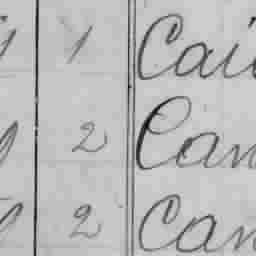 1 Cai
2 Can
2 Can